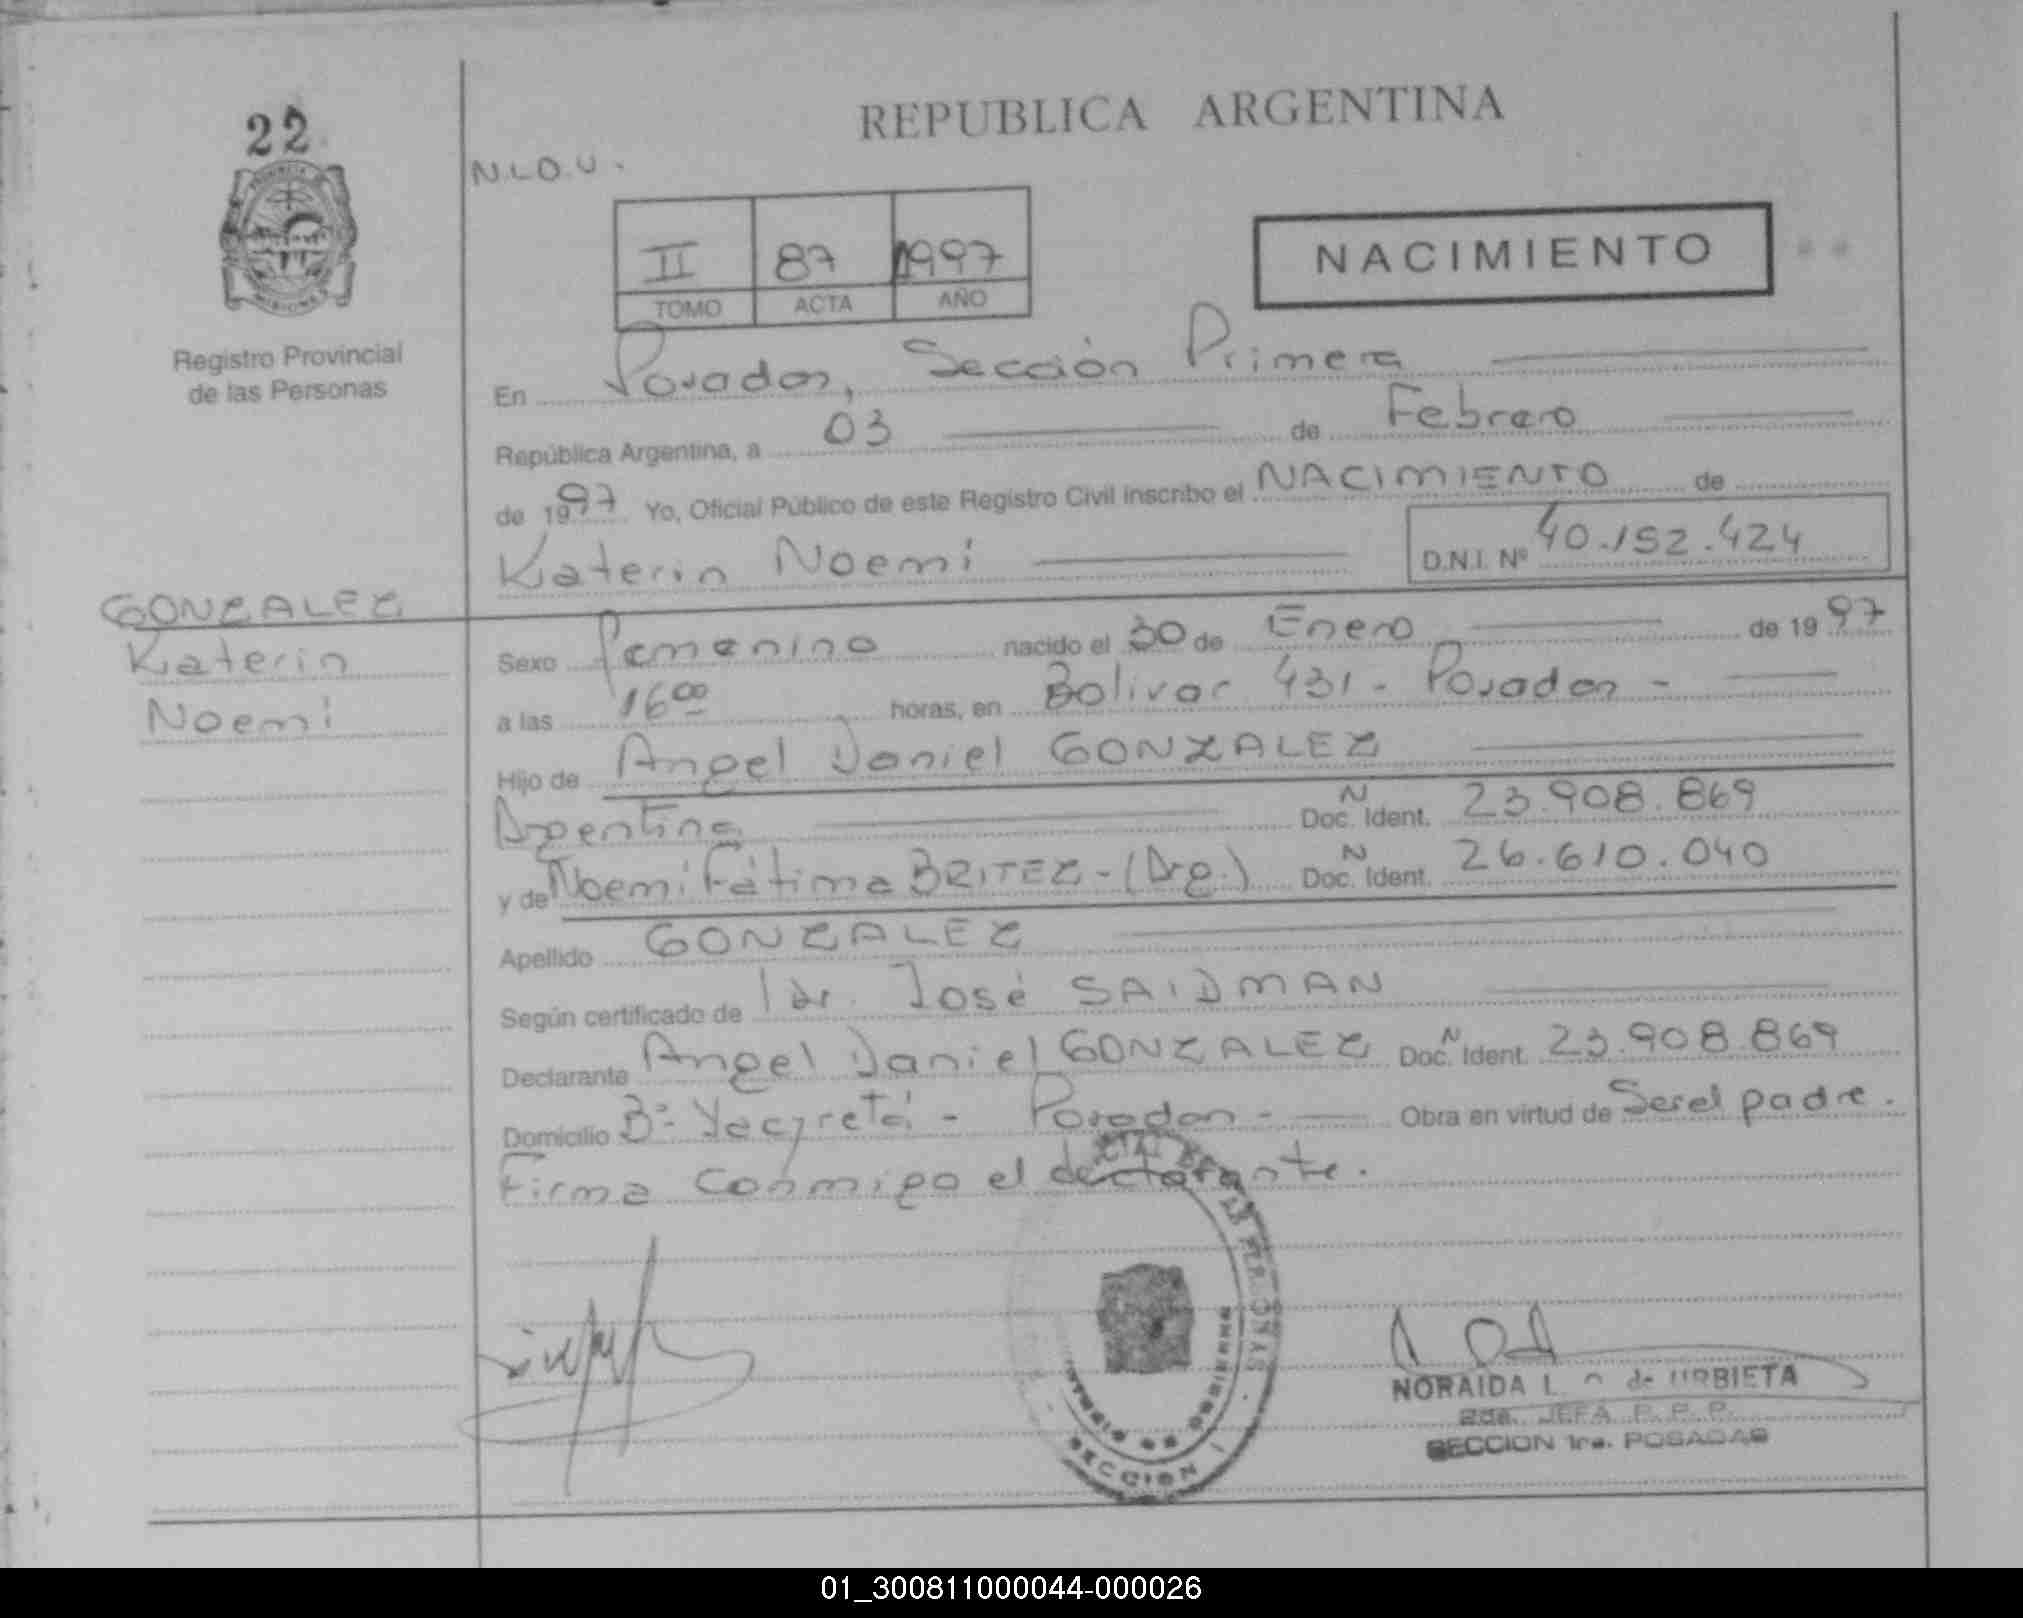 22
REPUBLICA ARGENTINA
N.L.O.U.
II 87 1997
TOMO ACTA AÑO
NACIMIENTO
Registro Provincial
de las Personas
En Posadas, Sección Primera
República Argentina, a 03 de Febrero
de 1997 Yo, Oficial Público de este Registro Civil inscribo el NACIMIENTO de
Katerin Noemí D.N.I. Nº 40.152.424
GONZALEZ
Katerin
Noemí
Sexo Femenino nacido el 30 de Enero de 1997
a las 1600 horas, en Bolivar 431 - Posadas -
Hijo de Angel Daniel GONZALEZ
Argentina Doc. Ñ Ident. 23.908.869
y de Noemi Fátima BRITEZ - (Arg.) Doc. Ñ Ident. 26.610.040
Apellido GONZALEZ
Según certificado de Dr. José SAIDMAN
Declarante Angel Daniel GONZALEZ Doc. Ñ Ident. 23.908.869
Domicilio Bº Yacyretá - Posadas - Obra en virtud de Ser el padre.
Firma conmigo el declarante.
NORAIDA L. de URBIETA
2da. JEFA P. P. P.
SECCION 1ra. POSADAS
DE LAS PERSONAS
MINISTERIO DE GOBIERNO
SECCION 1
01_300811000044-000026